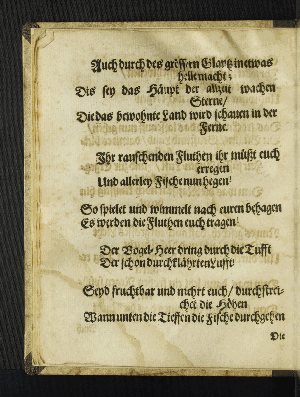 Auch durch des grössern Glantz in etwas
helle macht;
Dis sey das Häupt der allzeit wachen
Sterne/
Die das bewohnte Land wird schauen in der
Ferne.
Ihr rauschenden Fluthen ihr müßt euch
erregen
Und allerley Fische nun hegen!
So spielet und wimmelt nach euren behagen
Es werden die Fluthen euch tragen!
Der Vogel-Heer dring durch die Lufft
Der schon durchklährten Lufft!
Seyd fruchtbar und mehrt euch/ durchstrei-
chet die Höhen
Wann unten die Tieffen die Fische durchgehen
Die